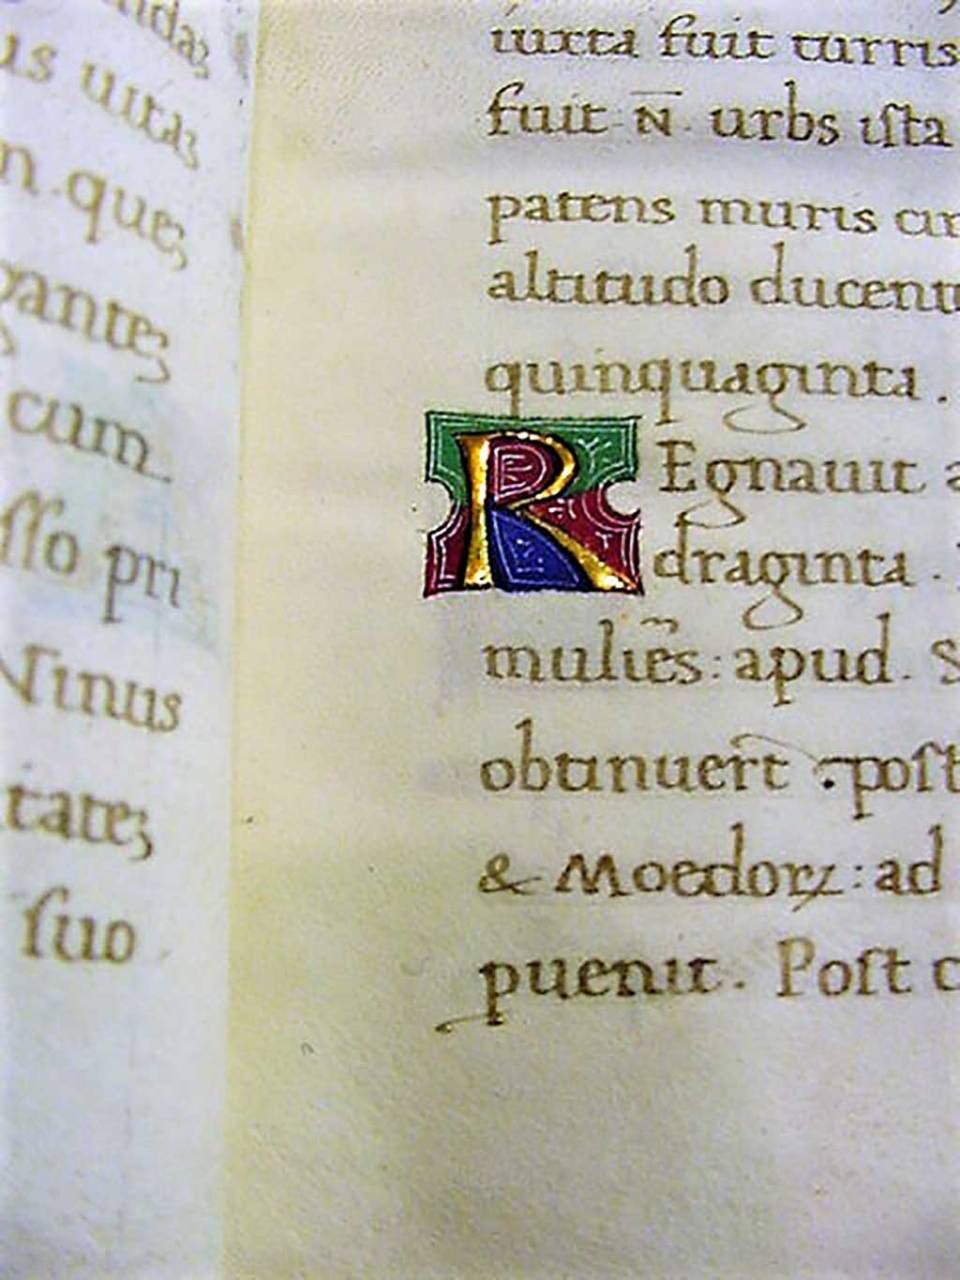 us uita;
n. que;
gante;
cum
sso pri
Ninus
tate;
suo
iuxta fuit turris
fuit N̄ urbs ista
patens muris cir
altitudo ducent
quinquaginta.
REgnauit a
draginta.
muliẽs: apud. S
obtinuer̃t post
& Moedoꝝ: ad
ꝑuenit. Post c